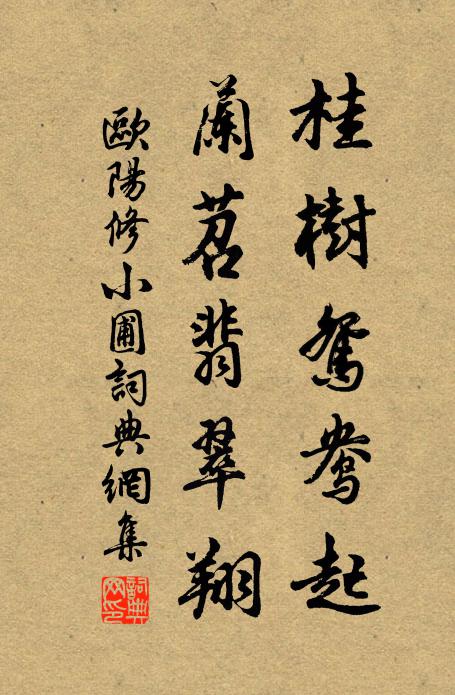 桂樹鴛鴦起
蘭苕翡翠翔
歐陽修小圃詞典網集
詞典網印